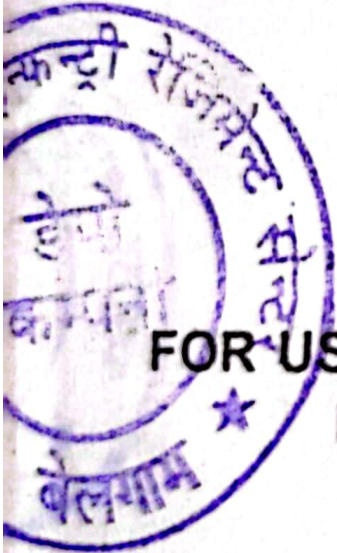 न्फन्ट्री रेजिमेन्ट सेन्टर
डेपो
कम्पनी
FOR US
★
बेलगाम